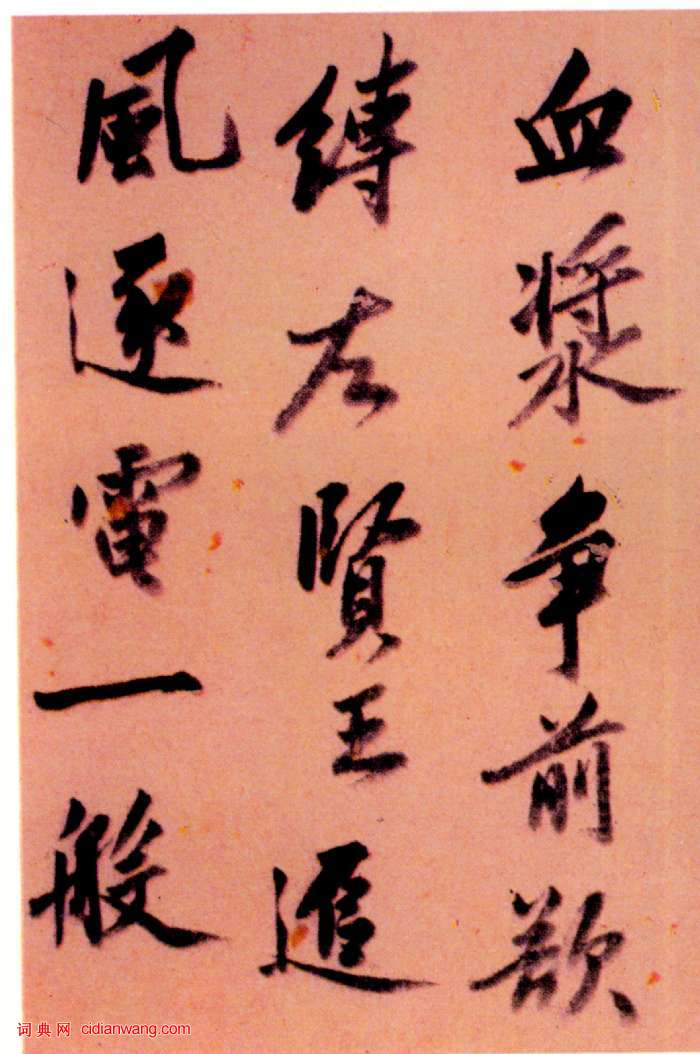 血漿争前欲
縛左賢王追
風逐電一般
词典网 cidianwang.com